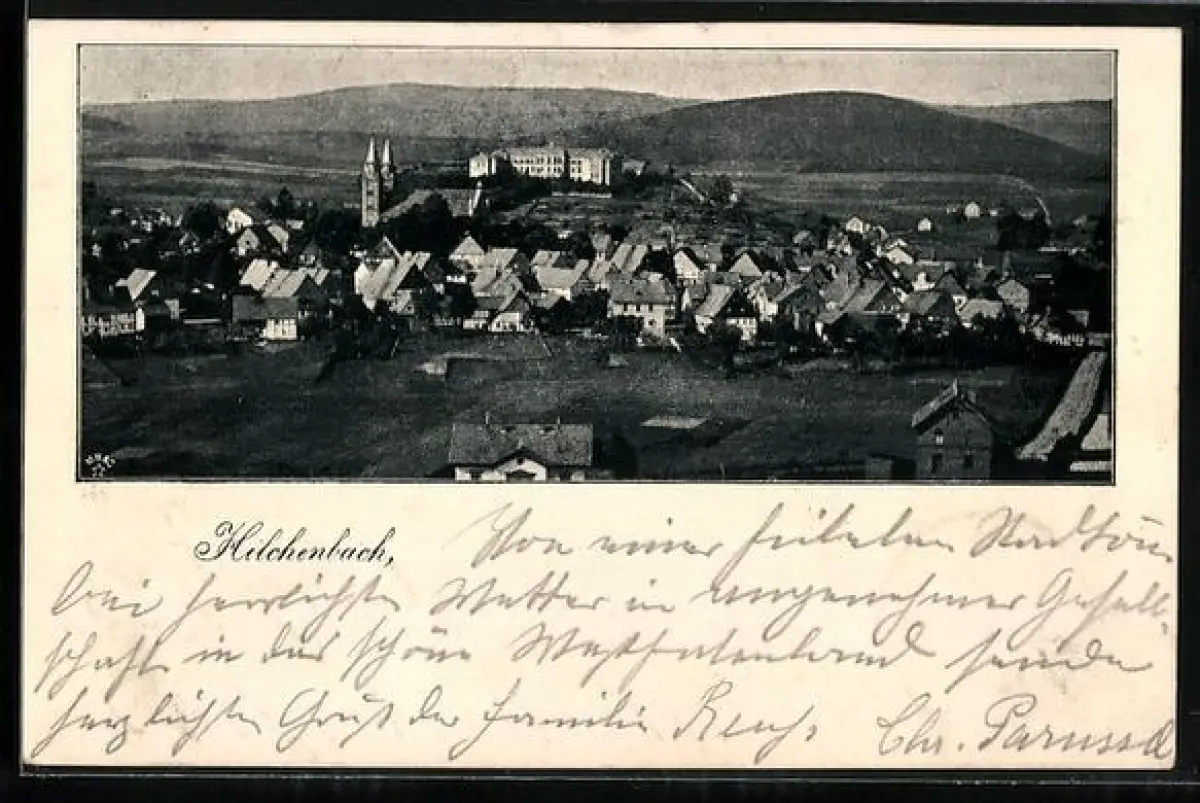 Hilchenbach,
Von einer fidelen Radtour
bei herrlichsten Wetter in angenehmer Gesell-
schaft in das schöne Westfalenland sende
herzlichsten Gruß der Familie Chr.